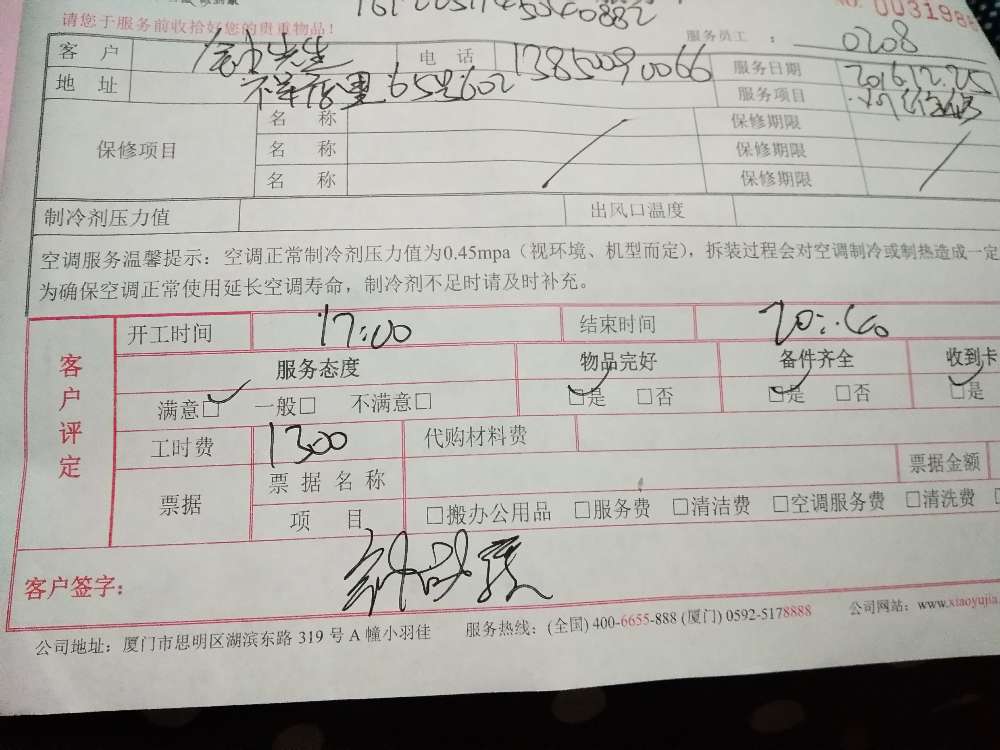 请您于服务前收拾好您的贵重物品!
NO. 0031988
服务员工 : 0208
客 户 先生 电 话 13850090066 服务日期 2016.12.25
地 址 65号602 服务项目
保修项目 名 称 保修期限
名 称 保修期限
名 称 保修期限
制冷剂压力值 出风口温度
空调服务温馨提示：空调正常制冷剂压力值为0.45mpa（视环境、机型而定），拆装过程会对空调制冷或制热造成一定
为确保空调正常使用延长空调寿命，制冷剂不足时请及时补充。
客户评定
开工时间 17:00 结束时间
服务态度 物品完好 备件齐全 收到卡
满意□ 一般□ 不满意□ □是 □否 □是 □否 □是
工时费 1300 代购材料费
票据 票据名称 票据金额
项 目 □搬办公用品 □服务费 □清洁费 □空调服务费 □清洗费
客户签字：
公司地址：厦门市思明区湖滨东路 319 号 A 幢小羽佳 服务热线：(全国) 400-6655-888 (厦门) 0592-5178888 公司网站：www.xiaoyujia.